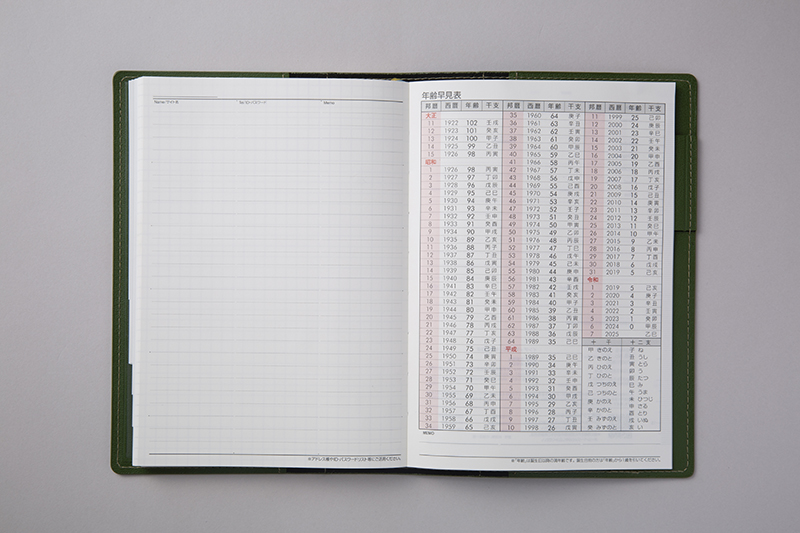 Name・サイト名 Tel・ID・パスワード Memo
※アドレス欄やID・パスワードリスト等にご活用ください。
年齢早見表
邦暦 西暦 年齢 干支
大正
11 1922 102 壬戌
12 1923 101 癸亥
13 1924 100 甲子
14 1925 99 乙丑
15 1926 98 丙寅
昭和
1 1926 98 丙寅
2 1927 97 丁卯
3 1928 96 戊辰
4 1929 95 己巳
5 1930 94 庚午
6 1931 93 辛未
7 1932 92 壬申
8 1933 91 癸酉
9 1934 90 甲戌
10 1935 89 乙亥
11 1936 88 丙子
12 1937 87 丁丑
13 1938 86 戊寅
14 1939 85 己卯
15 1940 84 庚辰
16 1941 83 辛巳
17 1942 82 壬午
18 1943 81 癸未
19 1944 80 甲申
20 1945 79 乙酉
21 1946 78 丙戌
22 1947 77 丁亥
23 1948 76 戊子
24 1949 75 己丑
25 1950 74 庚寅
26 1951 73 辛卯
27 1952 72 壬辰
28 1953 71 癸巳
29 1954 70 甲午
30 1955 69 乙未
31 1956 68 丙申
32 1957 67 丁酉
33 1958 66 戊戌
34 1959 65 己亥
MEMO
邦暦 西暦 年齢 干支
35 1960 64 庚子
36 1961 63 辛丑
37 1962 62 壬寅
38 1963 61 癸卯
39 1964 60 甲辰
40 1965 59 乙巳
41 1966 58 丙午
42 1967 57 丁未
43 1968 56 戊申
44 1969 55 己酉
45 1970 54 庚戌
46 1971 53 辛亥
47 1972 52 壬子
48 1973 51 癸丑
49 1974 50 甲寅
50 1975 49 乙卯
51 1976 48 丙辰
52 1977 47 丁巳
53 1978 46 戊午
54 1979 45 己未
55 1980 44 庚申
56 1981 43 辛酉
57 1982 42 壬戌
58 1983 41 癸亥
59 1984 40 甲子
60 1985 39 乙丑
61 1986 38 丙寅
62 1987 37 丁卯
63 1988 36 戊辰
64 1989 35 己巳
平成
1 1989 35 己巳
2 1990 34 庚午
3 1991 33 辛未
4 1992 32 壬申
5 1993 31 癸酉
6 1994 30 甲戌
7 1995 29 乙亥
8 1996 28 丙子
9 1997 27 丁丑
10 1998 26 戊寅
邦暦 西暦 年齢 干支
11 1999 25 己卯
12 2000 24 庚辰
13 2001 23 辛巳
14 2002 22 壬午
15 2003 21 癸未
16 2004 20 甲申
17 2005 19 乙酉
18 2006 18 丙戌
19 2007 17 丁亥
20 2008 16 戊子
21 2009 15 己丑
22 2010 14 庚寅
23 2011 13 辛卯
24 2012 12 壬辰
25 2013 11 癸巳
26 2014 10 甲午
27 2015 9 乙未
28 2016 8 丙申
29 2017 7 丁酉
30 2018 6 戊戌
31 2019 5 己亥
令和
1 2019 5 己亥
2 2020 4 庚子
3 2021 3 辛丑
4 2022 2 壬寅
5 2023 1 癸卯
6 2024 0 甲辰
7 2025 乙巳
十干
甲 きのえ
乙 きのと
丙 ひのえ
丁 ひのと
戊 つちのえ
己 つちのと
庚 かのえ
辛 かのと
壬 みずのえ
癸 みずのと
十二支
子 ね
丑 うし
寅 とら
卯 う
辰 たつ
巳 み
午 うま
未 ひつじ
申 さる
酉 とり
戌 いぬ
亥 い
※"年齢"は誕生日以降の満年齢です。誕生日前の方は"年齢"から1歳を引いてください。